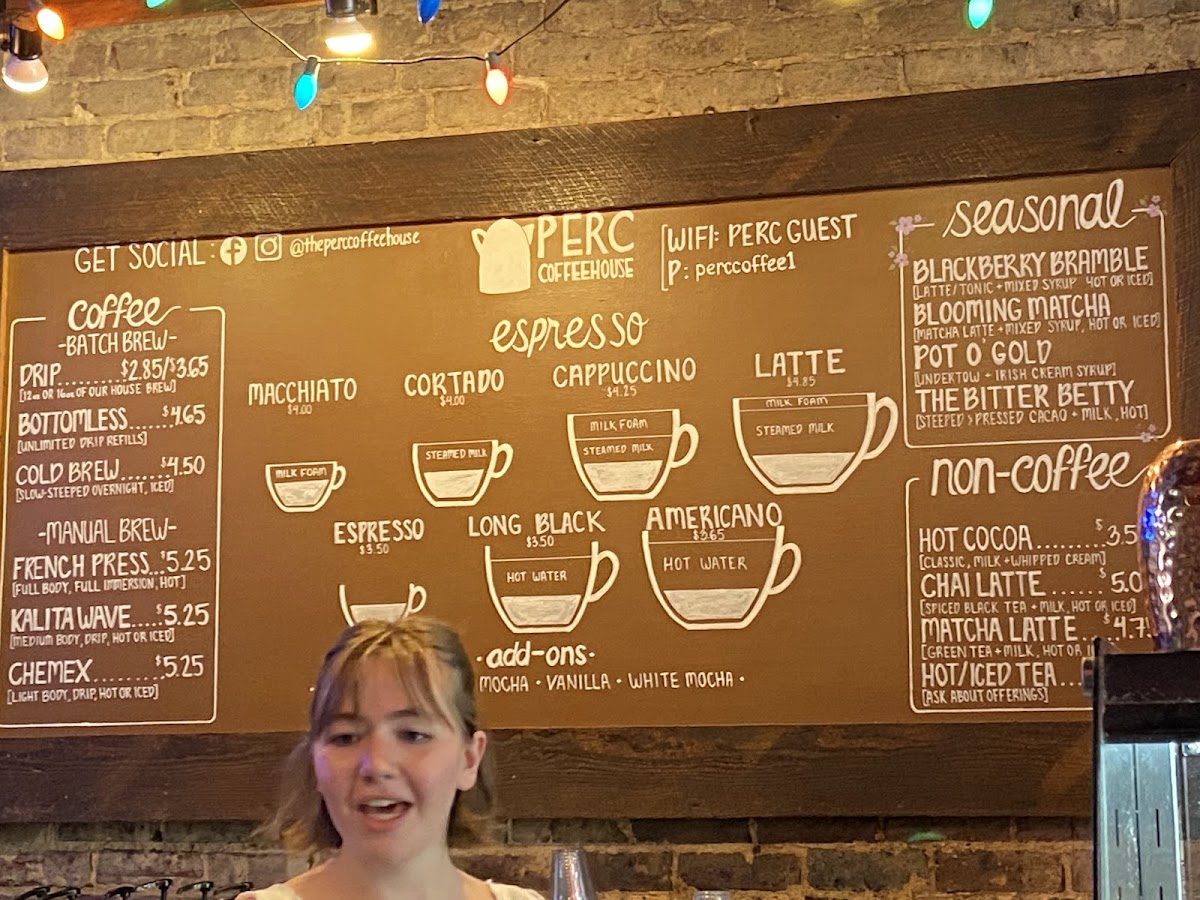 GET SOCIAL: @theperccoffeehouse
PERC
COFFEEHOUSE
WIFI: PERC GUEST
P: perccoffee1
coffee
-BATCH BREW-
DRIP.........$2.85/$3.65
[12oz OR 16oz OF OUR HOUSE BREW]
BOTTOMLESS.....$4.65
[UNLIMITED DRIP REFILLS]
COLD BREW......$4.50
[SLOW-STEEPED OVERNIGHT, ICED]
-MANUAL BREW-
FRENCH PRESS...$5.25
[FULL BODY, FULL IMMERSION, HOT]
KALITA WAVE.....$5.25
[MEDIUM BODY, DRIP, HOT OR ICED]
CHEMEX.........$5.25
[LIGHT BODY, DRIP, HOT OR ICED]
espresso
MACCHIATO
$4.00
MILK FOAM
CORTADO
$4.00
STEAMED MILK
CAPPUCCINO
$4.25
MILK FOAM
STEAMED MILK
LATTE
$4.85
MILK FOAM
STEAMED MILK
ESPRESSO
$3.50
LONG BLACK
$3.50
HOT WATER
AMERICANO
$3.65
HOT WATER
·add-ons·
MOCHA · VANILLA · WHITE MOCHA ·
seasonal
BLACKBERRY BRAMBLE
[LATTE/TONIC + MIXED SYRUP HOT OR ICED]
BLOOMING MATCHA
[MATCHA LATTE + MIXED SYRUP, HOT OR ICED]
POT O' GOLD
[UNDERTOW + IRISH CREAM SYRUP]
THE BITTER BETTY
[STEEPED > PRESSED CACAO + MILK, HOT]
non-coffee
HOT COCOA........$3.5
[CLASSIC, MILK + WHIPPED CREAM]
CHAI LATTE......$5.0
[SPICED BLACK TEA + MILK, HOT OR ICED]
MATCHA LATTE....$4.75
[GREEN TEA + MILK, HOT OR
HOT/ICED TEA...
[ASK ABOUT OFFERINGS]